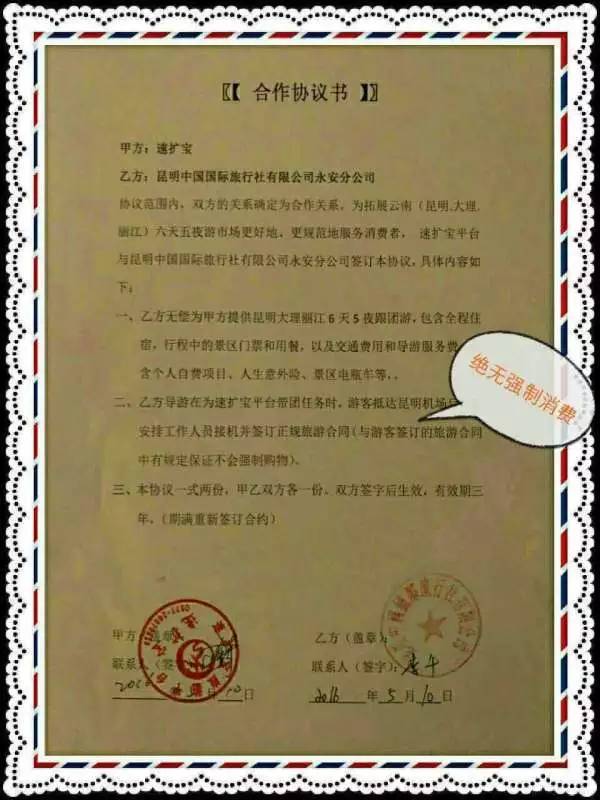 〖【 合作协议书 】〗
甲方：速扩宝
乙方：昆明中国国际旅行社有限公司永安分公司
协议范围内，双方的关系确定为合作关系，为拓展云南（昆明.大理.
丽江）六天五夜游市场更好地、更规范地服务消费者，速扩宝平台
与昆明中国国际旅行社有限公司永安分公司签订本协议，具体内容如
下：
一、乙方无偿为甲方提供昆明大理丽江6天5夜跟团游，包含全程住
宿，行程中的景区门票和用餐，以及交通费用和导游服务费
含个人自费项目、人生意外险、景区电瓶车等，.
绝无强制消费
二、乙方导游在为速扩宝平台带团任务时，游客抵达昆明机场
安排工作人员接机并签订正规旅游合同（与游客签订的旅游合同
中有规定保证不会强制购物）。
三、本协议一式两份，甲乙双方各一份。双方签字后生效，有效期三
年。（期满重新签订合约）
甲方（盖章
乙方（盖章）：
联系人（签字
联系人（签字）：
月10日
2016 年 5 月 10 日